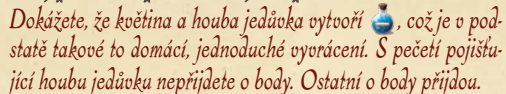 Dokážete, že květina a houba jedůvka vytvoří , což je v pod-
statě takové to domácí, jednoduché vyvrácení. S pečetí pojišťu-
jící houbu jedůvku nepřijdete o body. Ostatní o body přijdou.